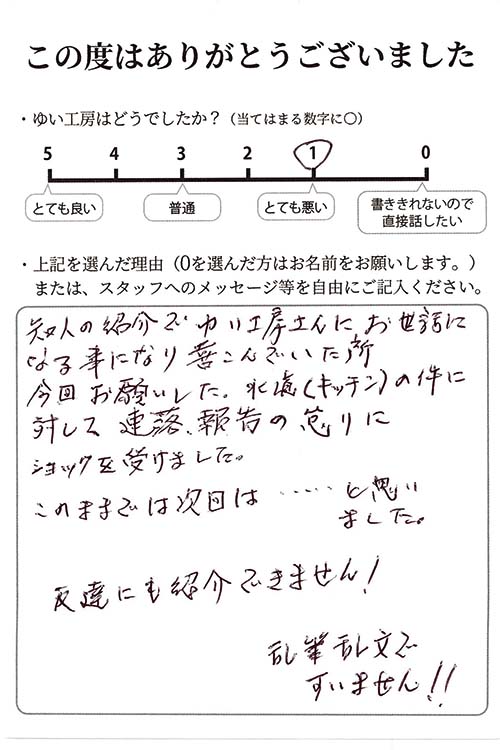 この度はありがとうございました
・ゆい工房はどうでしたか？（当てはまる数字に〇）
5 4 3 2 1 0
とても良い 普通 とても悪い 書ききれないので直接話したい
・上記を選んだ理由（0を選んだ方はお名前をお願いします。）
または、スタッフへのメッセージ等を自由にご記入ください。
知人の紹介でゆい工房さんにお世話に
なる事になり喜こんでいた所
今回お願いした。水道（キッチン）の件に
対して連落、報告の怠りに
ショックを受けました。
このままでは次回は ‥‥‥ と思い
ました。
友達にも紹介できません！
乱筆乱文で
すいません!!